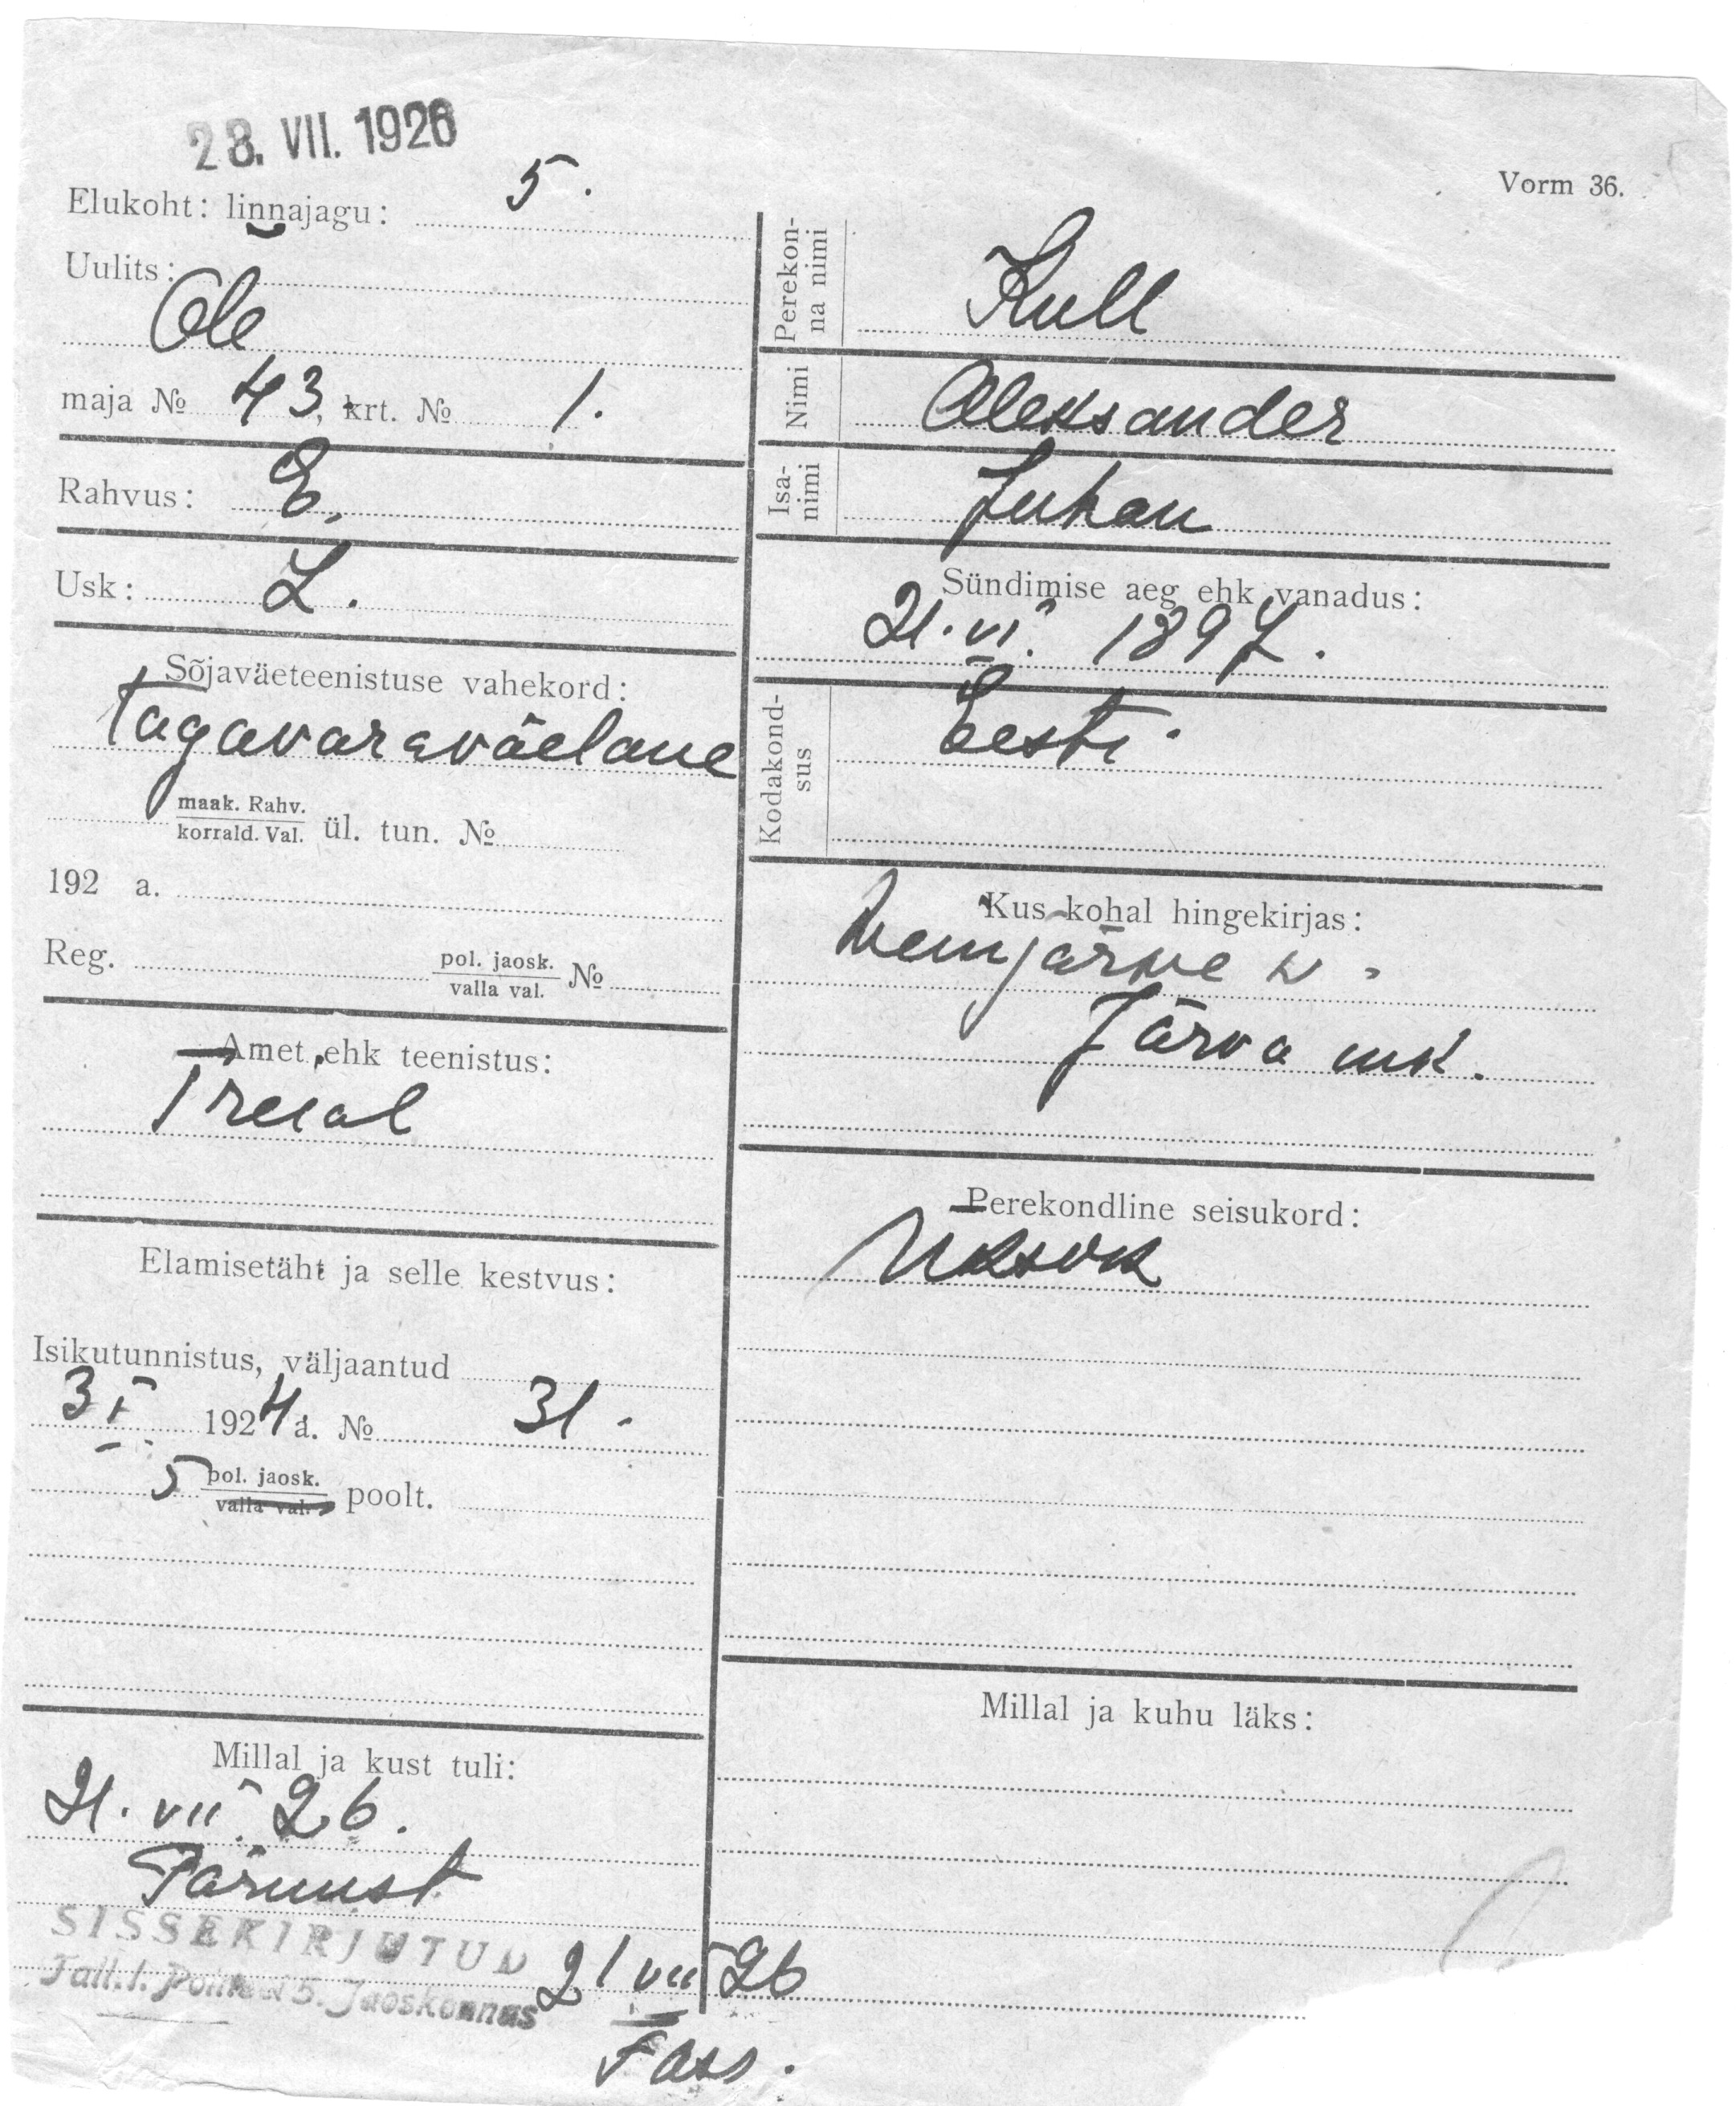 28. VII. 1926
Vorm 36.
Elukoht: linnajagu: 5.
Uulits:
Ole
maja № 43, krt. № 1.
Rahvus: E.
Usk: L.
Sõjaväeteenistuse vahekord:
Tagavaraväelane
maak. Rahv.
korrald. Val. ül. tun. №
192 a.
Reg. pol. jaosk.
valla val. №
Amet ehk teenistus:
Treial
Elamisetäht ja selle kestvus:
Isikutunnistus, väljaantud
3 I 1924 a. № 31.
5 pol. jaosk.
valla val. poolt.
Millal ja kust tuli:
21. VII 26.
Pärnust
SISSEKIRJUTUD
Tall. l. Politsei 5. Jaoskonnas
21 VII 26
Perekon-
na nimi
Kull
Nimi
Aleksander
Isa-
nimi
Juhan
Sündimise aeg ehk vanadus:
21. VI. 1897.
Kodakond-
sus
Eesti.
Kus kohal hingekirjas:
w.
Järva mk.
Perekondline seisukord:
Millal ja kuhu läks: